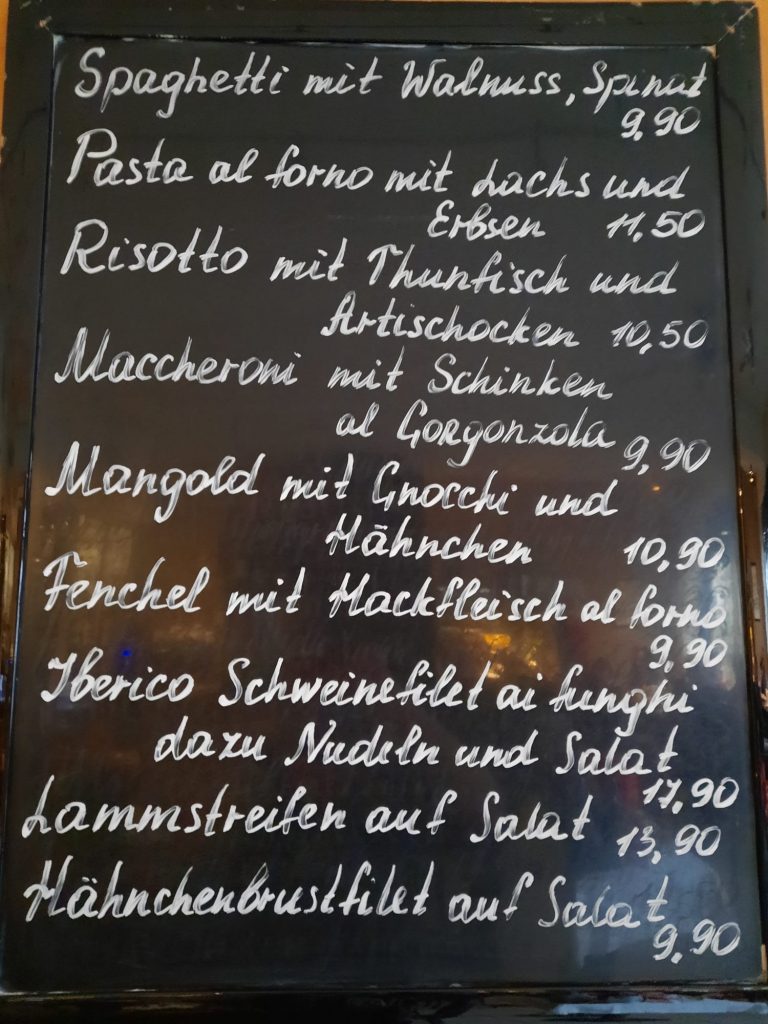 Spaghetti mit Walnuss, Spinat
9,90
Pasta al forno mit Lachs und
Erbsen 11,50
Risotto mit Thunfisch und
Artischocken 10,50
Maccheroni mit Schinken
al Gorgonzola 9,90
Mangold mit Gnocchi und
Hähnchen 10,90
Fenchel mit Hackfleisch al forno
9,90
Iberico Schweinefilet ai funghi
dazu Nudeln und Salat
17,90
Lammstreifen auf Salat 13,90
Hähnchenbrustfilet auf Salat
9,90